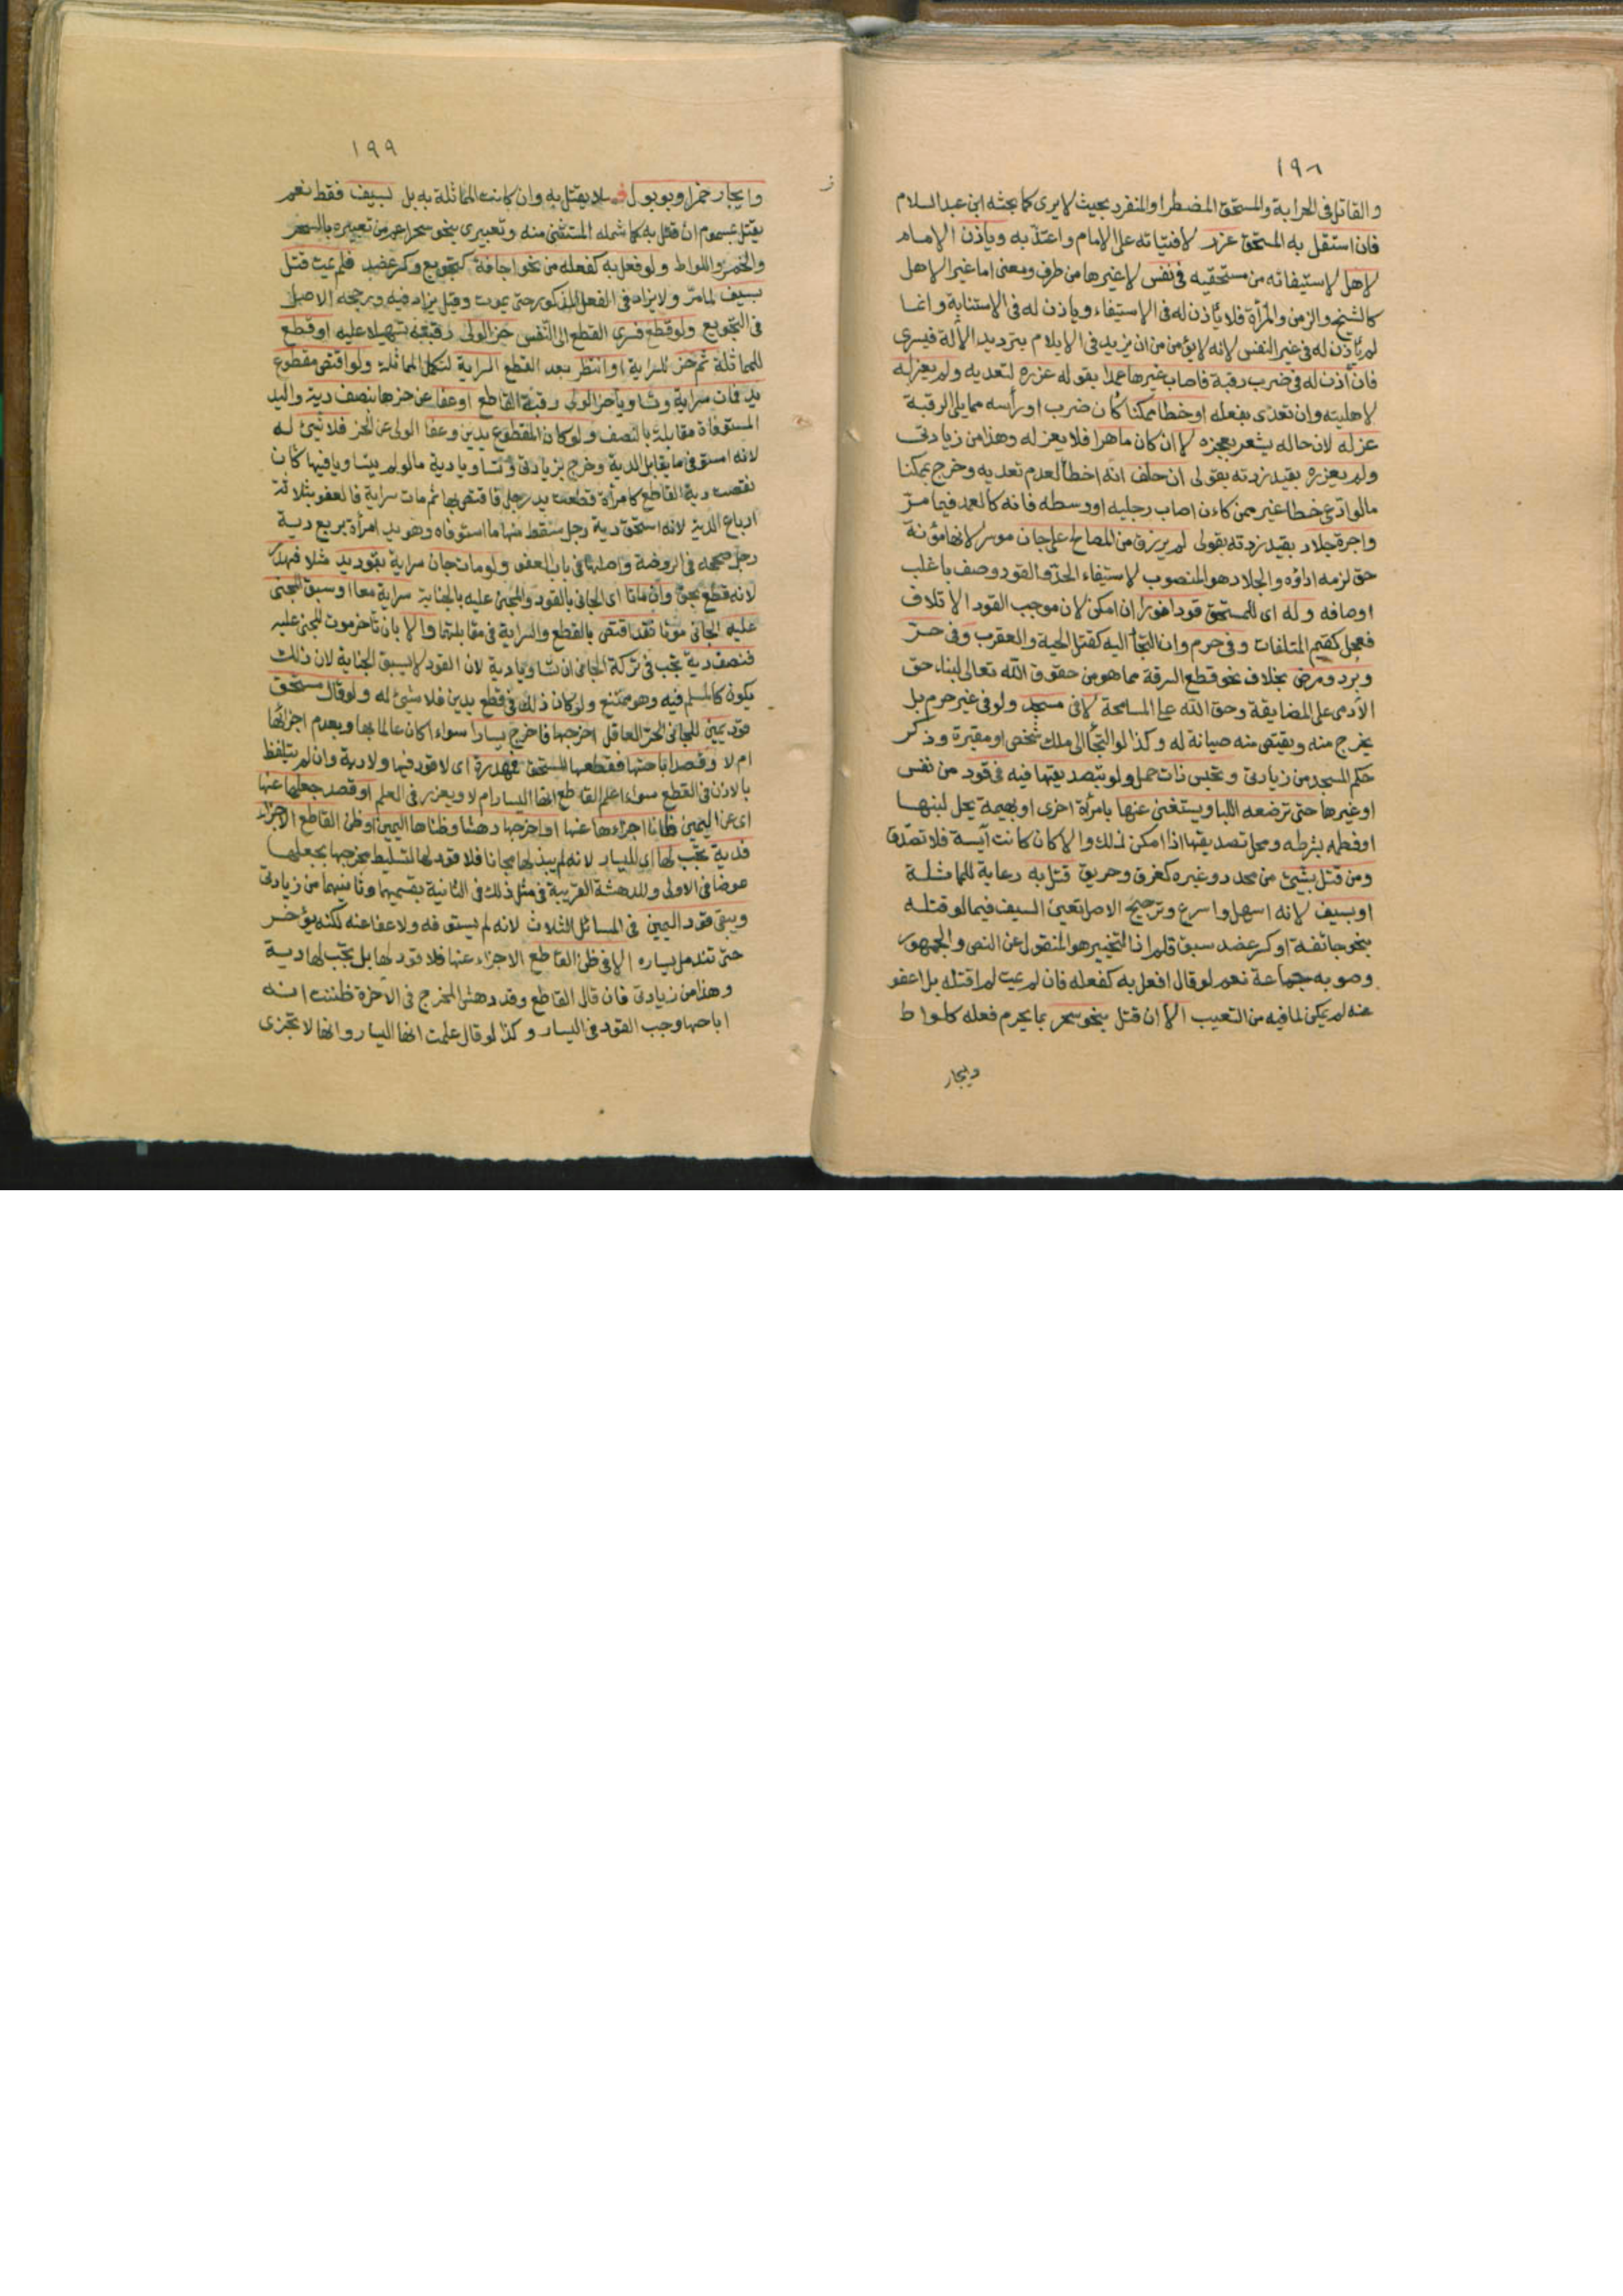 ١٩٨
والقاتل في الحرابة والمستحق المضطر او المنفرد بحيث لا يرى كما بحثه ابن عبد السلام
فان استقل به المستحق عزر لافتياته على الامام واعتد به وياذن الامام
لاهل لاستيفائه من مستحقيه في نفس لا غيرها من طرف ومعنى اما غير الاهل
كالشيخ والزمن والمرأة فلا يأذن له في الاستيفاء وياذن له في الاستنابة وانما
لم يأذن له في غير النفس لانه لا يؤمن من ان يزيد في الايلام بترديد الآلة فيسري
فان أذن له في ضرب رقبة فاصاب غيرها عمدا بقوله عزره لتعديه ولم يعزله
لاهليته وان تعدى بفعله او خطأ ممكنا كأن ضرب او رأسه مما يلي الرقبة
عزله لان حاله يشعر بعجزه لا ان كان ماهرا فلا يعزله وهذا من زيادتي
ولم يعزره بقيد زدته بقولي ان حلف انه اخطأ لعدم تعديه وخرج بممكنا
مالو ادعى خطا غير ممكن كاءن اصاب رجليه او وسطه فانه كالعمد فيما مر
واجرة جلاد بقيد زدته بقولي لم يرزق من المصالح على جان موسر لانها مؤنة
حق لزمه اداؤه والجلاد هو المنصوب لاستيفاء الحد والقود وصف باغلب
اوصافه وله اى للمستحق قود فورا ان امكن لان موجب القود الاتلاف
فعجل كقيم المتلفات وفي حرم وان التجأ اليه كقتل الحية والعقرب وفي حر
وبرد ومرض بخلاف نحو قطع السرقة مما هو من حقوق الله تعالى لبناء حق
الآدمى على المضايقة وحق الله على المسامحة لا في مسجد ولو في غير حرم بل
يخرج منه ويقتص منه صيانة له وكذا لو التجأ الى ملك شخص او مقبرة وذكر
حكم المسجد من زيادتي وتحبس ذات حمل ولو بتصديقها فيه في قود من نفس
او غيرها حتى ترضعه اللبا ويستغني عنها بامرأة اخرى او بهيمة يحل لبنها
او فطمه بشرطه ومحل تصديقها اذا امكن ذلك والا كان كانت آيسة فلا تصدق
ومن قتل بشيئ من محدد وغيره كغرق وحريق قتل به رعاية للمماثلة
او بسيف لانه اسهل واسرع وترجيح الاصل تعين السيف فيما لو قتله
بنحو جائفة او كسر عضد سبق قلم اذ التخيير هو المنقول عن النص والجمهور
وصوبه جماعة نعم لو قال افعل به كفعله فان لم يمت لم اقتله بل اعفو
عنه لم يمكن لما فيه من التعيب الا ان قتل بنحو سحر بما يحرم فعله كلواط
وايجار
١٩٩
وايجار خمر او ببول فلا يقتل به وان كانت المماثلة به بل بسيف فقط نعم
يقتل بمسموم ان قتل به كما شمله المستثنى منه وتعبيرى بنحو سحر اعم من تعبيره بالسحر
والخمر واللواط ولو فعل به كفعله من نحو اجافة كتجويع وكسر عضد فلم يمت قتل
بسيف لما مر ولا يزاد في الفعل المذكور حتى يموت وقيل يزاد فيه ورجحه الاصل
في التجويع ولو قطع فسرى القطع الى النفس حز الولى رقبته تسهيلا عليه او قطع
للمماثلة ثم حز للسراية او انتظر بعد القطع السراية لتكمل المماثلة ولو اقتص مقطوع
يد فمات سراية وتساويا حز الولى رقبة القاطع او عفا عن حزها بنصف دية واليد
المستوفاة مقابلة بالنصف ولو كان المقطوع يدين وعفا الولى عن الحز فلا شيئ له
لانه استوفى ما يقابل الدية وخرج بزيادتي وتساويا دية مالو لم يتساويا فيها كان
نقصت دية القاطع كامرأة قطعت يد رجل فاقتص بها ثم مات سراية فالعفو بثلاثة
ارباع الدية لانه استحق دية رجل سقط منها ما استوفاه وهو يد امرأة بربع دية
رجل صححه في الروضة واصلها في باب العفو ولو مات جان سراية بقود يد مثلا فهدر
لانه قطع بحق وان ماتا اى الجانى بالقود والمجنى عليه بالجناية سراية معا او سبق المجنى
عليه الجانى موتا فقد اقتص بالقطع والسراية في مقابلتها والا بان تأخر موت المجنى عليه
فنصف دية تجب في تركة الجانى ان تساويا دية لان القود لا يسبق الجناية لان ذلك
يكون كالمسلم فيه وهو ممتنع ولو كان ذلك في قطع يدين فلا شيئ له ولو قال مستحق
قود يمين للجانى الحر العاقل اخرجها فاخرج يسارا سواء اكان عالما بها وبعدم اجزائها
ام لا وقصد اباحتها فقطعها المستحق فمهدرة اى لا قود فيها ولا دية وان لم يتلفظ
بالاذن في القطع سواء اعلم القاطع انها اليسار ام لا ويعزر في العلم او قصد جعلها عنها
اى عن اليمين ظانا اجزاءها عنها او اخرجها دهشا وظناها اليمين او ظن القاطع الاجزاء
فدية تجب لها اى لليسار لانه لم يبذلها مجانا فلا قود لها لتسليط مخرجها بجعلها
عوضا في الاولى وللدهشة القريبة في مثل ذلك في الثانية بقسميها وثانيهما من زيادتي
ويبقى قود اليمين في المسائل الثلاث لانه لم يستوفه ولا عفا عنه لكنه يؤخر
حتى تندمل يساره الا في ظن القاطع الاجزاء عنها فلا قود لها بل تجب لها دية
وهذا من زيادتي فان قال القاطع وقد دهش المخرج في الآخرة ظننت انه
اباحها وجب القود في اليسار وكذا لو قال علمت انها اليسار وانها لا تجزى